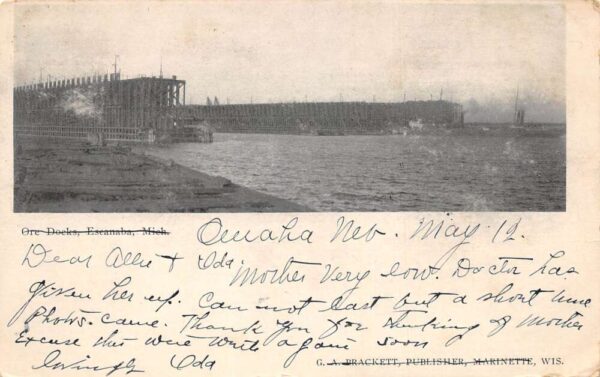 Ore Docks, Escanaba, Mich.
Omaha Neb. May 12.
Dear Allie + Ida
Mother Very low. Doctor has
given her up. Can not last but a short time
Photos came. Thank You for thinking of Mother
Excuse this Will write again soon
lovingly Ida
G. A. BRACKETT, PUBLISHER, MARINETTE, WIS.